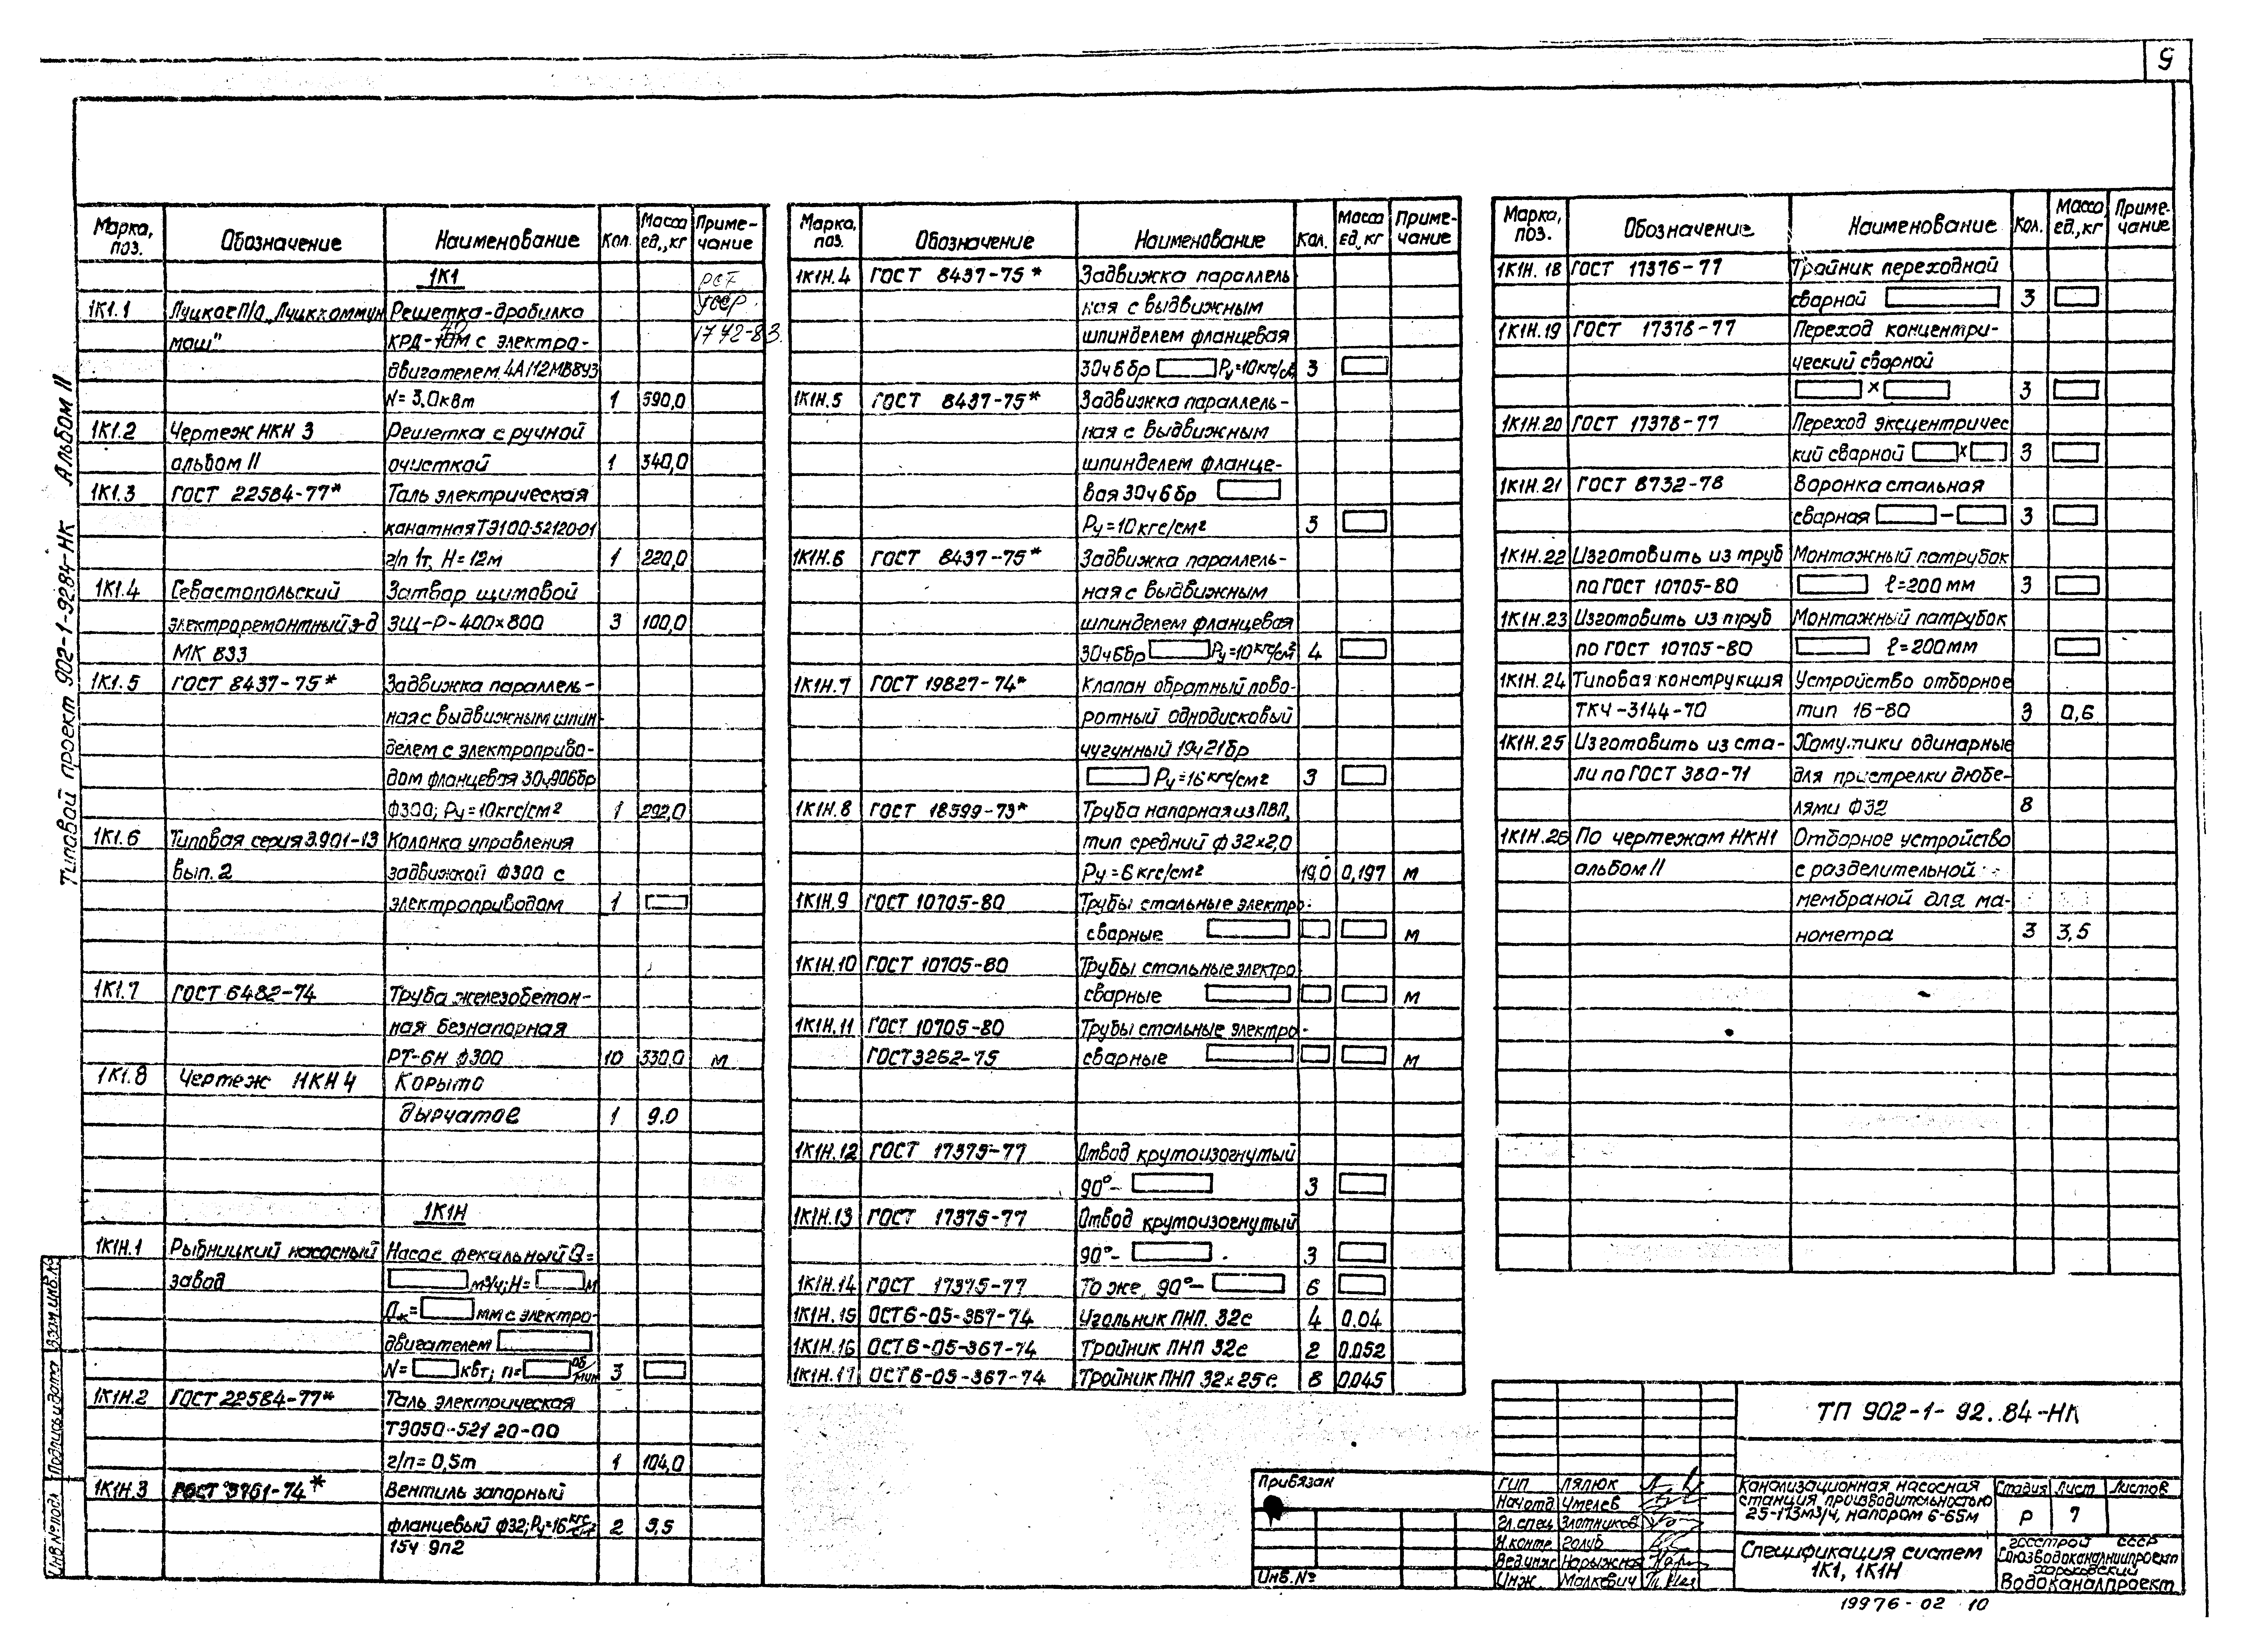 9
Типовой проект 902-1-92.84-НК Альбом II
Марка, поз. Обозначение Наименование Кол. Масса ед., кг Приме-чание
1К1
РСТ
УССР
1742-83
1К1.1 Луцкое П/О „Луцккоммун Решетка-дробилка
маш" КРД-40М с электро-
двигателем 4А112МВ8У3
N= 3,0 кВт 1 590,0
1К1.2 Чертеж НКН 3 Решетка с ручной
альбом II очисткой 1 340,0
1К1.3 ГОСТ 22584-77* Таль электрическая
канатная ТЭ100-52120-01
г/п 1т, Н=12м 1 220,0
1К1.4 Севастопольский Затвор щитовой
электроремонтный з-д ЗЩ-Р-400×800 3 100,0
МК 833
1К1.5 ГОСТ 8437-75* Задвижка параллель-
ная с выдвижным шпин-
делем с электроприво-
дом фланцевая 30ч906бр
Ф300; Ру=10кгс/см² 1 292,0
1К1.6 Типовая серия 3.901-13 Колонка управления
вып. 2 задвижкой Ф300 с
электроприводом 1
1К1.7 ГОСТ 6482-74 Труба железобетон-
ная безнапорная
РТ-6Н Ф300 10 330,0 м
1К1.8 Чертеж НКН 4 Корыто
дырчатое 1 9.0
1К1Н
1К1Н.1 Рыбницкий насосный Насос фекальный Q=
завод м³/ч; Н= м
Дк= мм с электро-
двигателем
N= кВт; n= об/мин 3
1К1Н.2 ГОСТ 22584-77* Таль электрическая
ТЭ050-521 20-00
г/п= 0,5т 1 104,0
1К1Н.3 ГОСТ 3761-74* Вентиль запорный
фланцевый Ф32; Ру=16 кгс/см² 2 9,5
15ч 9п2
Марка, поз. Обозначение Наименование Кол. Масса ед., кг Приме-чание
1К1Н.4 ГОСТ 8437-75* Задвижка параллель
ная с выдвижным
шпинделем фланцевая
30ч6бр Ру=10кгс/см² 3
1К1Н.5 ГОСТ 8437-75* Задвижка параллель-
ная с выдвижным
шпинделем фланце-
вая 30ч6бр
Ру=10кгс/см² 3
1К1Н.6 ГОСТ 8437-75* Задвижка параллель-
ная с выдвижным
шпинделем фланцевая
30ч6бр Ру=10кгс/см² 4
1К1Н.7 ГОСТ 19827-74* Клапан обратный пово-
ротный однодисковый
чугунный 19ч21бр
Ру=16кгс/см² 3
1К1Н.8 ГОСТ 18599-73* Труба напорная из ПВП,
тип средний ф32×2,0
Ру=6 кгс/см² 19,0 0,197 м
1К1Н.9 ГОСТ 10705-80 Трубы стальные электро-
сварные м
1К1Н.10 ГОСТ 10705-80 Трубы стальные электро
сварные м
1К1Н.11 ГОСТ 10705-80 Трубы стальные электро-
ГОСТ 3262-75 сварные м
1К1Н.12 ГОСТ 17375-77 Отвод крутоизогнутый
90°- 3
1К1Н.13 ГОСТ 17375-77 Отвод крутоизогнутый
90°- 3
1К1Н.14 ГОСТ 17375-77 То же, 90°- 6
1К1Н.15 ОСТ6-05-367-74 Угольник ПНП. 32с 4 0.04
1К1Н.16 ОСТ6-05-367-74 Тройник ПНП 32с 2 0.052
1К1Н.17 ОСТ6-05-367-74 Тройник ПНП 32×25с 8 0.045
Марка, поз. Обозначение Наименование Кол. Масса, ед., кг Приме-чание
1К1Н.18 ГОСТ 17376-77 Тройник переходной
сварной 3
1К1Н.19 ГОСТ 17378-77 Переход концентри-
ческий сварной
× 3
1К1Н.20 ГОСТ 17378-77 Переход эксцентричес
кий сварной × 3
1К1Н.21 ГОСТ 8732-78 Воронка стальная
сварная - 3
1К1Н.22 Изготовить из труб Монтажный патрубок
по ГОСТ 10705-80 ℓ=200 мм 3
1К1Н.23 Изготовить из труб Монтажный патрубок
по ГОСТ 10705-80 ℓ=200мм
1К1Н.24 Типовая конструкция Устройство отборное
ТКЧ-3144-70 тип 16-80 3 0,6
1К1Н.25 Изготовить из ста- Хомутики одинарные
ли по ГОСТ 380-71 для пристрелки дюбе-
лями Ф32 8
1К1Н.26 По чертежам НКН1 Отборное устройство
альбом II с разделительной
мембраной для ма-
нометра 3 3,5
ТП 902-1-92.84-НК
Привязан
Инв. №
ГИП Лялюк
Нач.отд. Чмелев
Гл.спец Злотников
Н.контр Голуб
Вед.инж Нарыжная
Инж. Малкевич
Канализационная насосная
станция производительностью
25-173м³/ч, напором 6-65м
Стадия Лист Листов
Р 7
Спецификация систем
1К1, 1К1Н
Госстрой СССР
Союзводоканалниипроект
Харьковский
Водоканалпроект
Взам.инв.№
Подпись и дата
Инв.№ подл.
19976-02 10